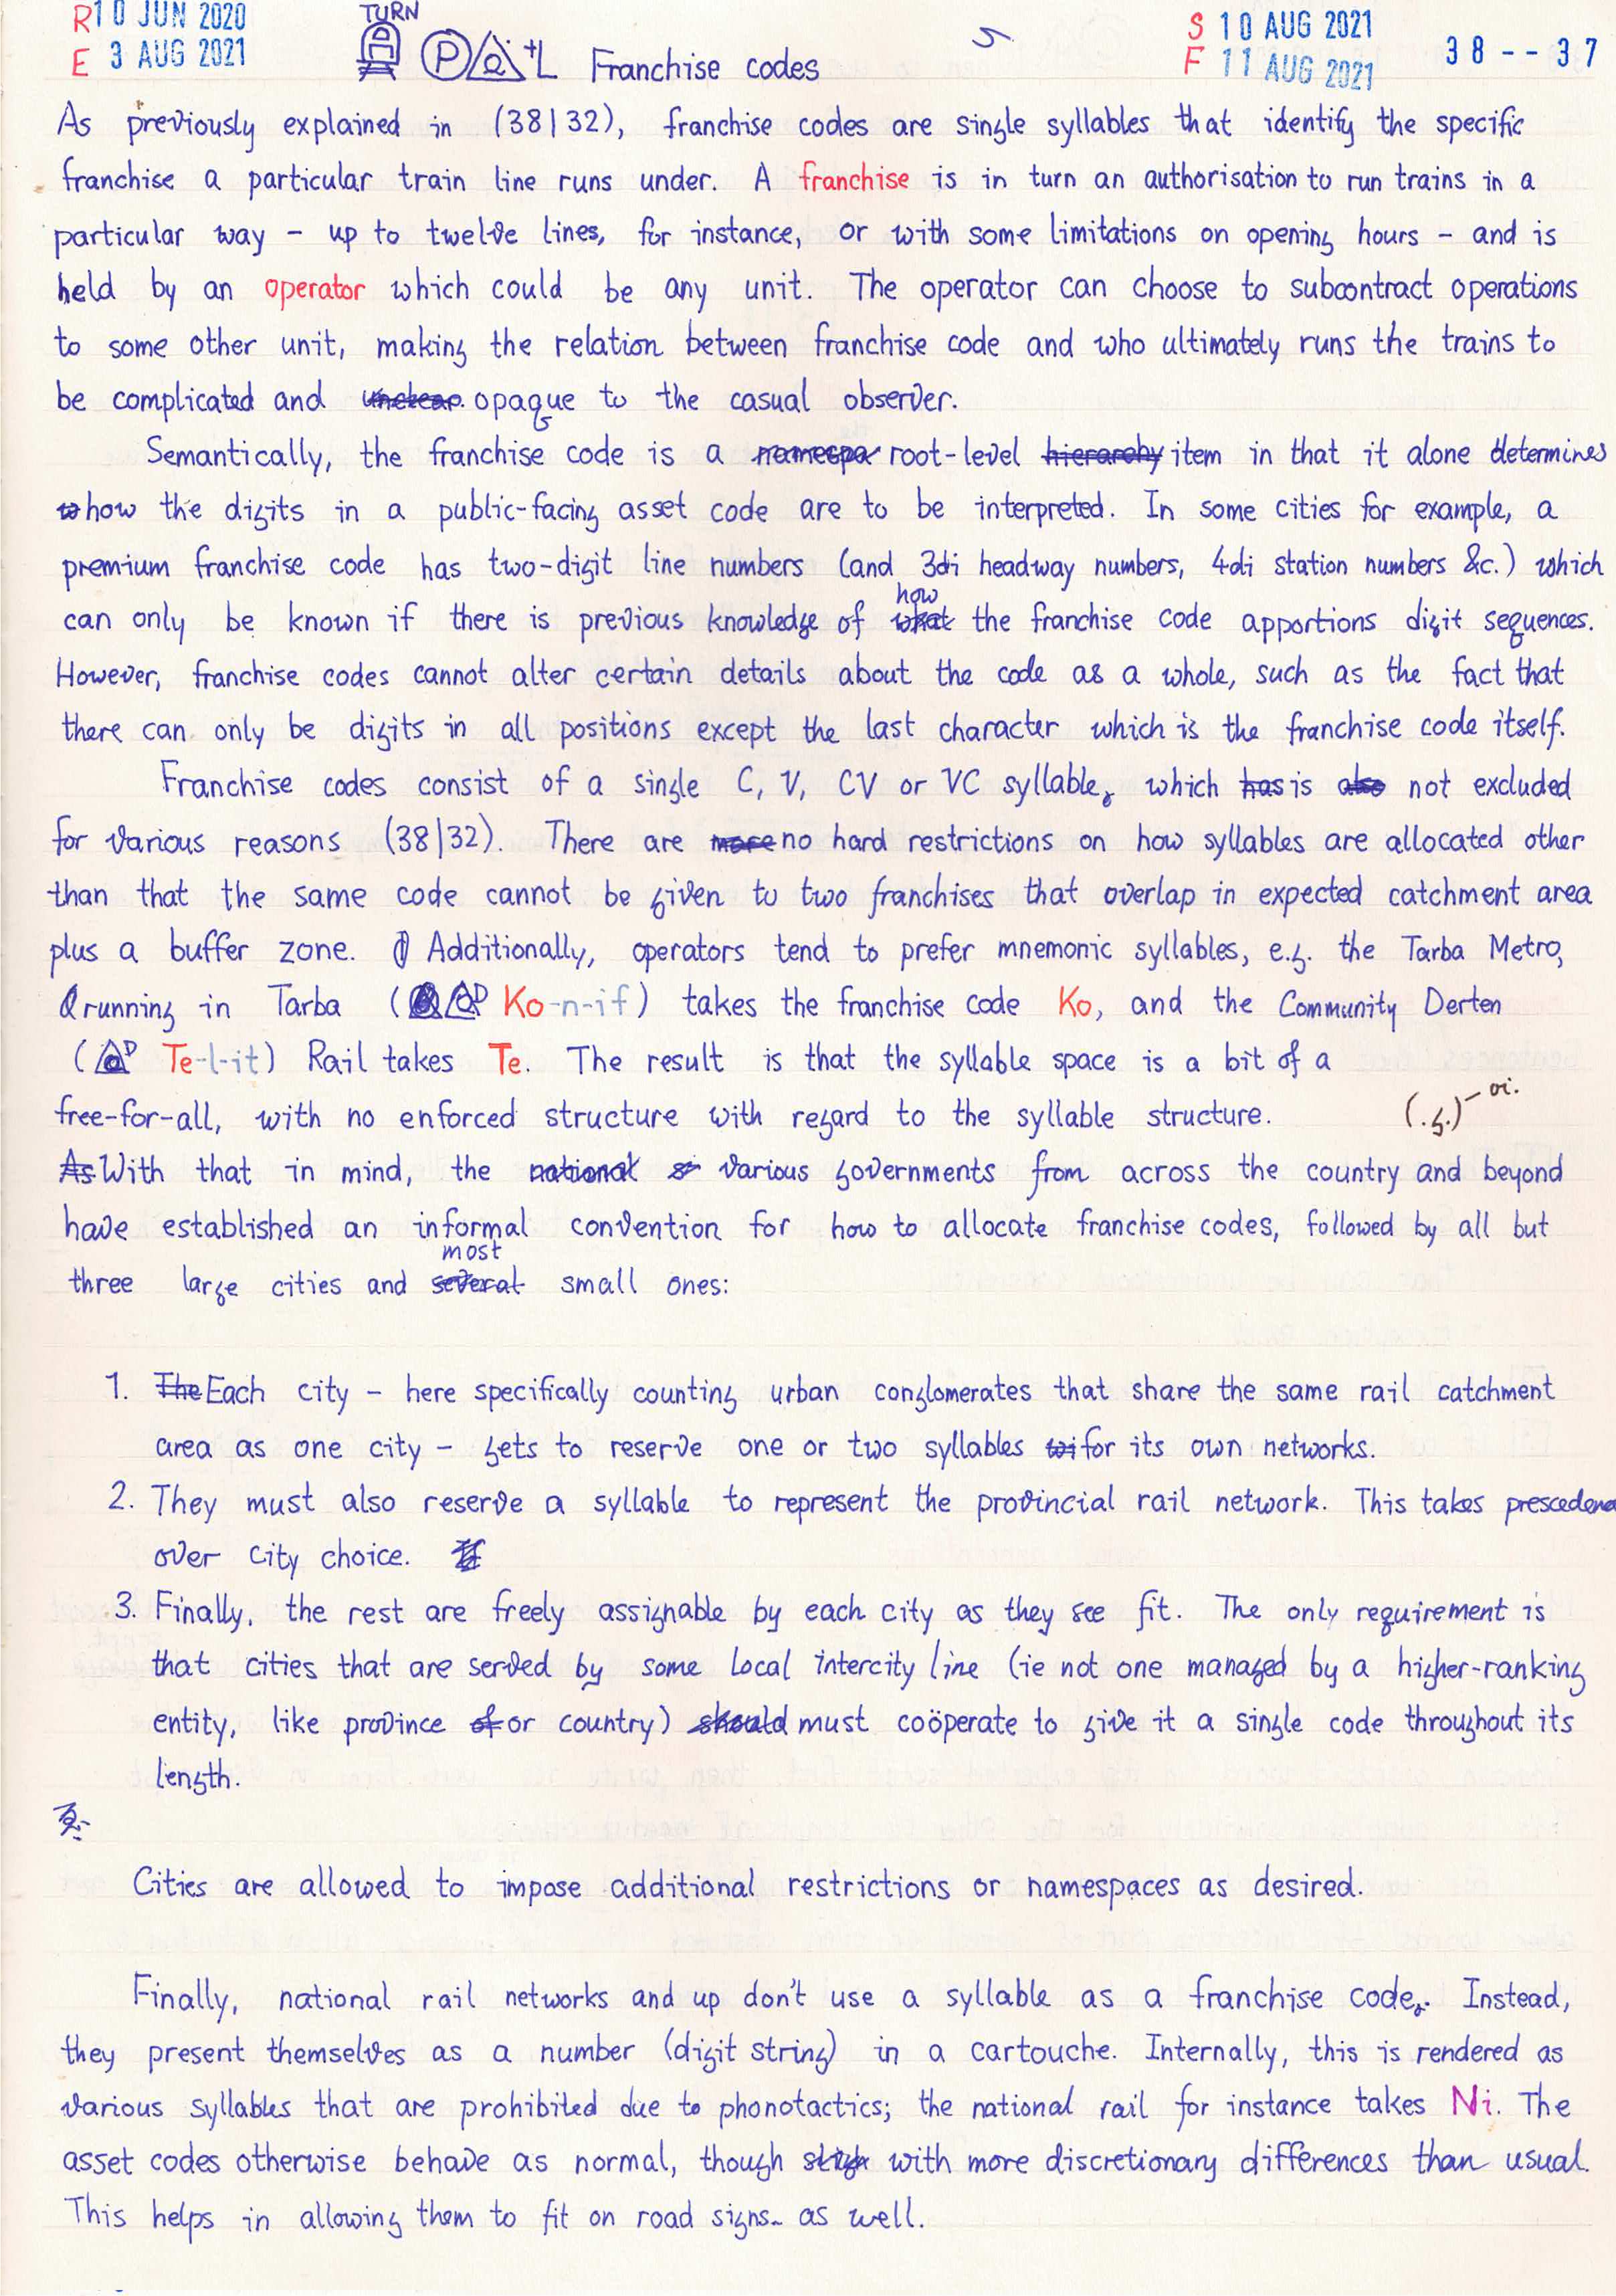 R 10 JUN 2020
E 3 AUG 2021
TURN
P +L Franchise codes
S 10 AUG 2021
F 11 AUG 2021
38--37
As previously explained in (38|32), franchise codes are single syllables that identify the specific
franchise a particular train line runs under. A franchise is in turn an authorisation to run trains in a
particular way – up to twelve lines, for instance, or with some limitations on opening hours – and is
held by an operator which could be any unit. The operator can choose to subcontract operations
to some other unit, making the relation between franchise code and who ultimately runs the trains to
be complicated and unclear opaque to the casual observer.
Semantically, the franchise code is a namespa root-level hierarchy item in that it alone determines
how the digits in a public-facing asset code are to be interpreted. In some cities for example, a
premium franchise code has two-digit line numbers (and 3di headway numbers, 4di station numbers &c.) which
can only be known if there is previous knowledge of what how the franchise code apportions digit sequences.
However, franchise codes cannot alter certain details about the code as a whole, such as the fact that
there can only be digits in all positions except the last character which is the franchise code itself.
Franchise codes consist of a single C, V, CV or VC syllable, which has is also not excluded
for various reasons (38|32). There are more no hard restrictions on how syllables are allocated other
than that the same code cannot be given to two franchises that overlap in expected catchment area
plus a buffer zone. Additionally, operators tend to prefer mnemonic syllables, e.g. the Tarba Metro,
running in Tarba ( Ko-n-if) takes the franchise code Ko, and the Community Derten
( Te-l-it) Rail takes Te. The result is that the syllable space is a bit of a
free-for-all, with no enforced structure with regard to the syllable structure. (.g.) – oi.
As With that in mind, the national various governments from across the country and beyond
have established an informal convention for how to allocate franchise codes, followed by all but
three large cities and several most small ones:
1. The Each city – here specifically counting urban conglomerates that share the same rail catchment
area as one city – gets to reserve one or two syllables wi for its own networks.
2. They must also reserve a syllable to represent the provincial rail network. This takes prescedenc
over city choice. If
3. Finally, the rest are freely assignable by each city as they see fit. The only requirement is
that cities that are served by some local intercity line (ie not one managed by a higher-ranking
entity, like province of or country) should must coöperate to give it a single code throughout its
length.
Cities are allowed to impose additional restrictions or namespaces as desired.
Finally, national rail networks and up don't use a syllable as a franchise code. Instead,
they present themselves as a number (digit string) in a cartouche. Internally, this is rendered as
various syllables that are prohibited due to phonotactics; the national rail for instance takes Ni. The
asset codes otherwise behave as normal, though with more discretionary differences than usual.
This helps in allowing them to fit on road signs as well.